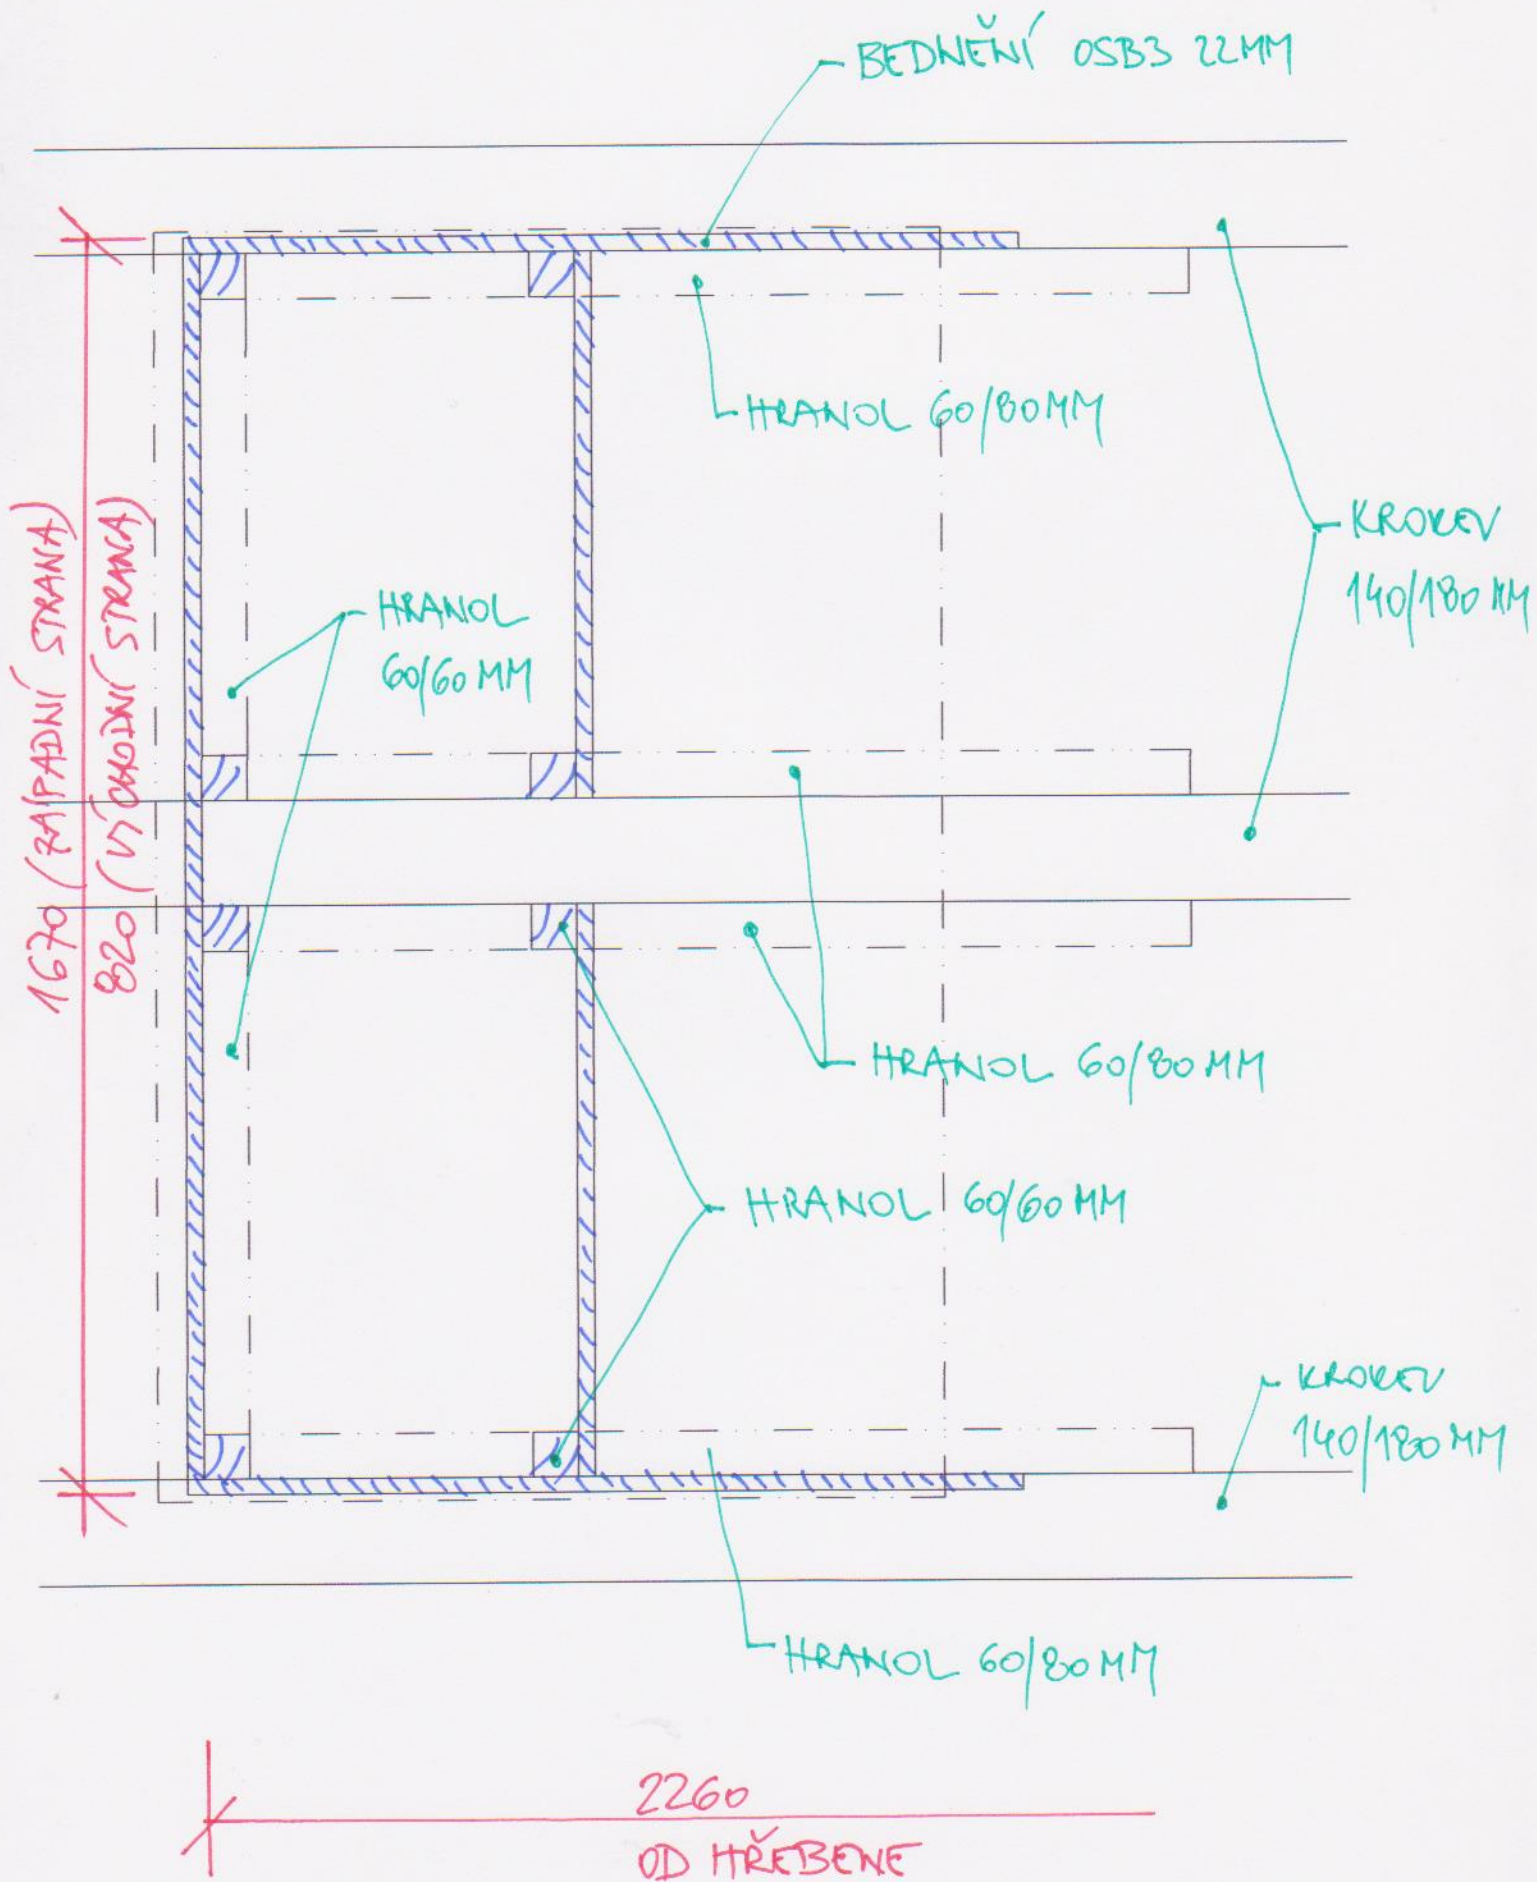 BEDNĚNÍ OSB3 22MM
HRANOL 60/80MM
KROKEV
140/180 MM
HRANOL
60/60 MM
1670 (ZÁPADNÍ STRANA)
820 (VÝCHODNÍ STRANA)
HRANOL 60/80 MM
HRANOL 60/60 MM
KROKEV
140/180 MM
HRANOL 60/80 MM
2260
OD HŘEBENE